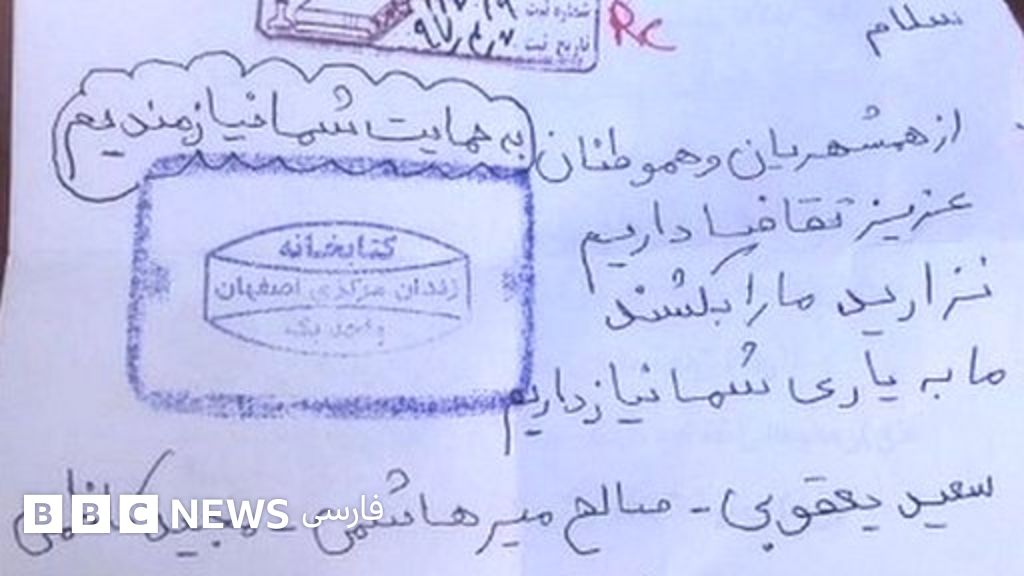 شماره ثبت
تاریخ ثبت ۹۷٫۴٫۷
RC
سلام
از همشهریان و هموطنان به حمایت شما نیازمندیم
عزیز تقاضا داریم
نزارید ما را بکشند
ما به یاری شما نیاز داریم
کتابخانه
زندان مرکزی اصفهان
واحد یک
سعید یعقوبی - صالح میرهاشمی - مجید کاظمی
BBC NEWS فارسی